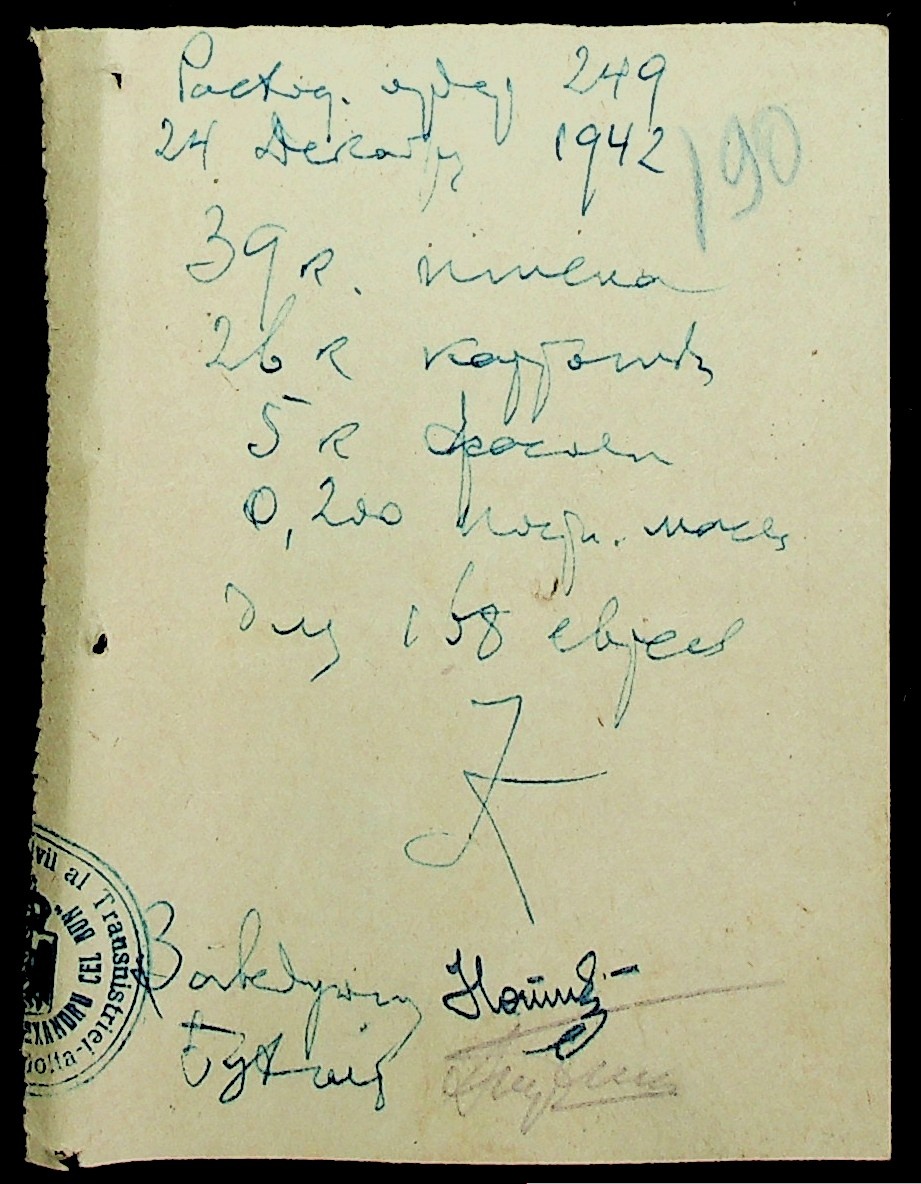 Расход. ордер 249
24 Декабря 1942
190
39 к. пшена
26 к картошки
5 к фасоли
0,200 постн. масла
для 168 евреев
Civil al Transnistriei
ALEXANDRU CEL BUN
Golta